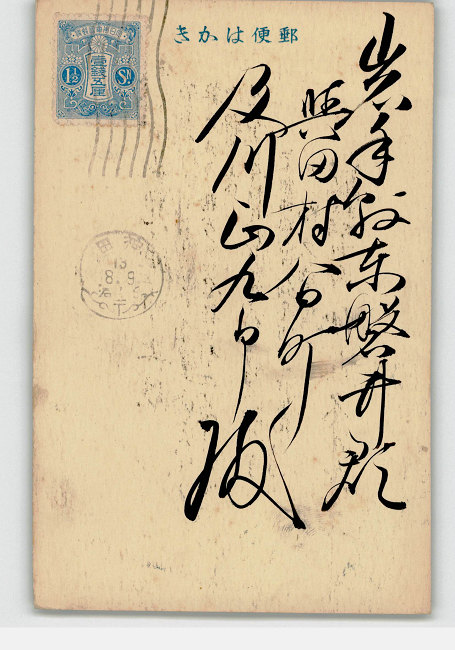 郵便はかき
壹銭五厘
1½ Sn
岩手縣東磐井郡
興田村
及川正九郎殿
8.9